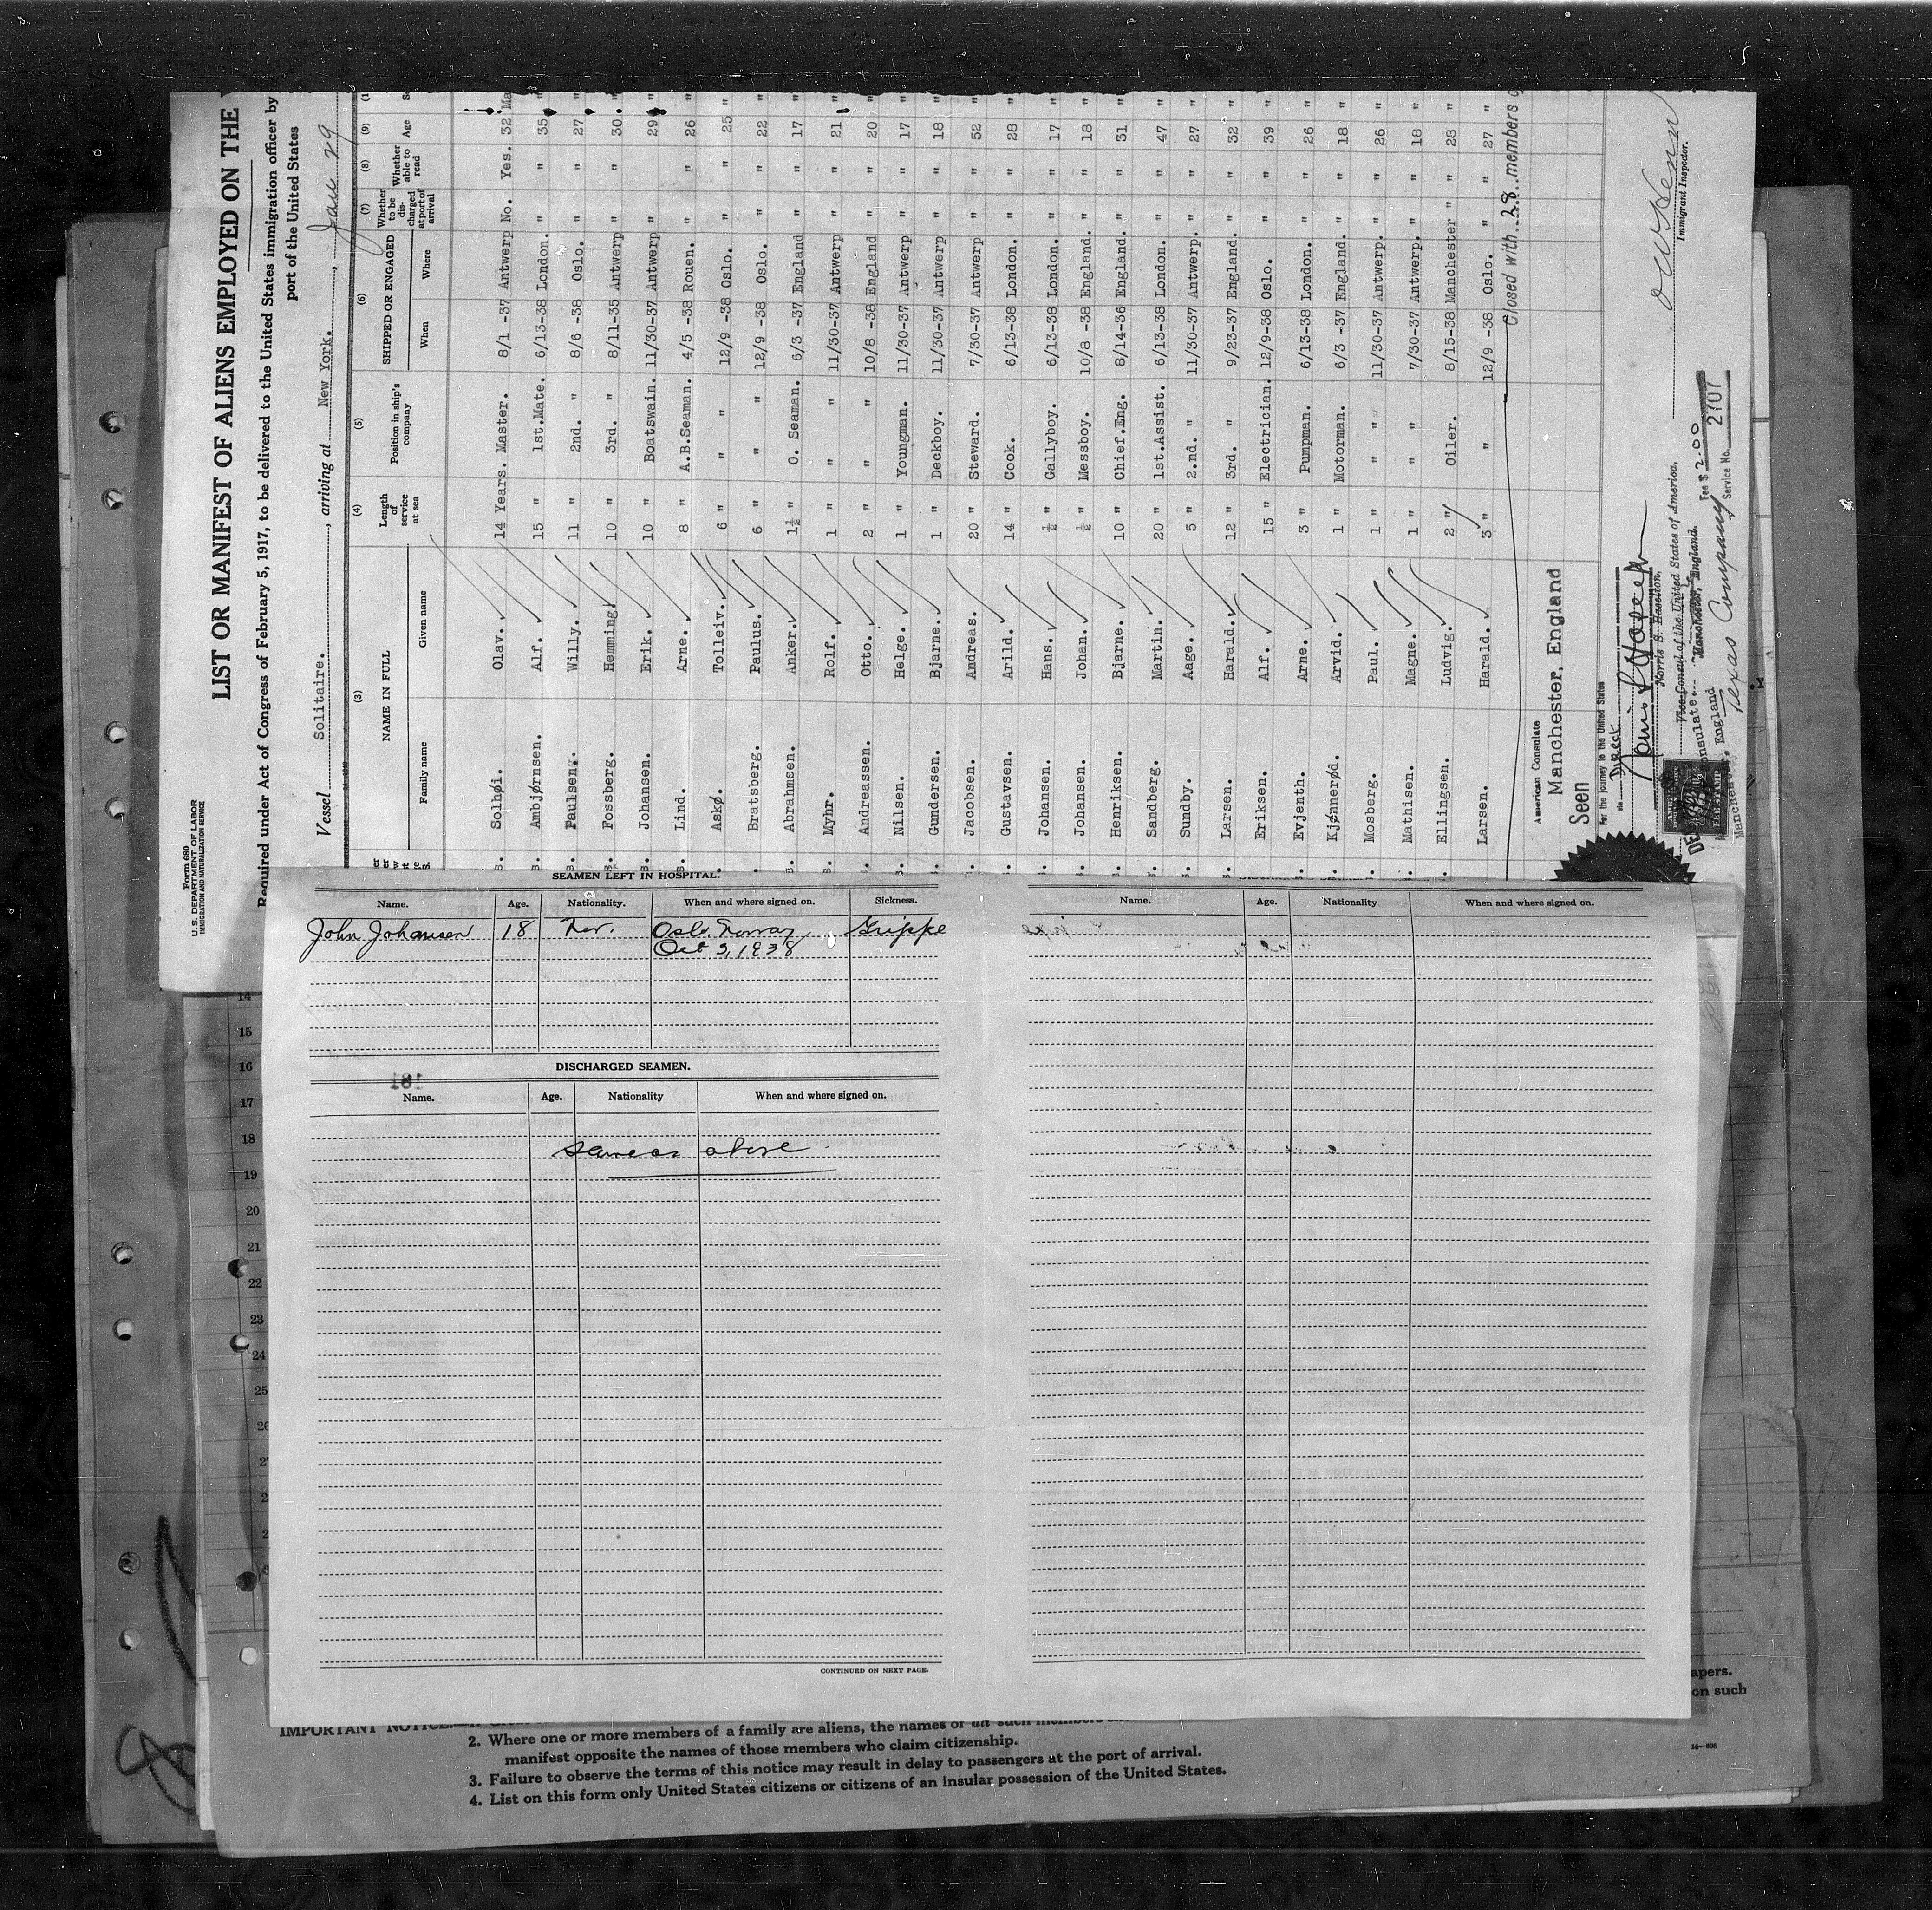 Form 680
U. S. DEPARTMENT OF LABOR
IMMIGRATION AND NATURALIZATION SERVICE
LIST OR MANIFEST OF ALIENS EMPLOYED ON THE
Required under Act of Congress of February 5, 1917, to be delivered to the United States immigration officer by
port of the United States
Vessel Solitaire. , arriving at New York. , Jan 29
(3) (4) (5) (6) (7) (8) (9)
NAME IN FULL Length of service at sea Position in ship's company SHIPPED OR ENGAGED Whether to be discharged at port of arrival Whether able to read Age
Family name Given name When Where
Solhøi. Olav. 14 Years. Master. 8/1 -37 Antwerp No. Yes. 32
Ambjørnsen. Alf. 15 " 1st.Mate. 6/13-38 London. " " 35 "
Paulsen. Willy. 11 " 2nd. " 8/6 -38 Oslo. " " 27 "
Fossberg. Hemming. 10 " 3rd. " 8/11-35 Antwerp " " 30. "
Johansen. Erik. 10 " Boatswain. 11/30-37 Antwerp " 29 "
Lind. Arne. 8 " A.B.Seaman. 4/5 -38 Rouen. " " 26 "
Askø. Tolleiv. 6 " " " 12/9 -38 Oslo. " " 25 "
Bratsberg. Paulus. 6 " " " 12/9 -38 Oslo. " " 22 "
Abrahmsen. Anker. 1½ " O. Seaman. 6/3 -37 England " " 17 "
Myhr. Rolf. 1 " " " 11/30-37 Antwerp " " 21 "
Andreassen. Otto. 2 " " " 10/8 -38 England " " 20 "
Nilsen. Helge. 1 " Youngman. 11/30-37 Antwerp " " 17 "
Gundersen. Bjarne. 1 " Deckboy. 11/30-37 Antwerp " " 18 "
Jacobsen. Andreas. 20 " Steward. 7/30-37 Antwerp " " 52 "
Gustavsen. Arild. 14 " Cook. 6/13-38 London. " " 28 "
Johansen. Hans. ½ " Gallyboy. 6/13-38 London. " " 17 "
Johansen. Johan. ½ " Messboy. 10/8 -38 England. " " 18 "
Henriksen. Bjarne. 10 " Chief.Eng. 8/14-36 England. " " 31 "
Sandberg. Martin. 20 " 1st.Assist. 6/13-38 London. " " 47 "
Sundby. Aage. 5 " 2.nd. " 11/30-37 Antwerp. " " 27 "
Larsen. Harald. 12 " 3rd. " 9/23-37 England. " " 32 "
Eriksen. Alf. 15 " Electrician. 12/9-38 Oslo. " " 39 "
Evjenth. Arne. 3 " Pumpman. 6/13-38 London. " " 26 "
Kjønnerød. Arvid. 1 " Motorman. 6/3 -37 England. " " 18 "
Mosberg. Paul. 1 " " " 11/30-37 Antwerp. " " 26 "
Mathisen. Magne. 1 " " " 7/30-37 Antwerp. " " 18 "
Ellingsen. Ludvig. 2 " Oiler. 8/15-38 Manchester " " 28 "
Larsen. Harald. 3 " " 12/9 -38 Oslo. " " 27 "
Closed with 28 members
American Consulate
Manchester, England
Seen
For the journey to the United States
via Direct
Norris S. Haselton,
Vice Consul of the United States of America,
Manchester, England.
Fee $ 2.00
Service No. 2707
Texas Company
Immigrant Inspector.
SEAMEN LEFT IN HOSPITAL.
Name. Age. Nationality. When and where signed on. Sickness.
John Johansen 18 Nor. Oslo, Norway Grippe
Oct 3, 1938
DISCHARGED SEAMEN.
Name. Age. Nationality When and where signed on.
same as above
CONTINUED ON NEXT PAGE.
Name. Age. Nationality When and where signed on.
14
15
16
17
18
19
20
21
22
23
24
25
apers.
on such
IMPORTANT NOTICE.
2. Where one or more members of a family are aliens, the names of all such members
manifest opposite the names of those members who claim citizenship.
3. Failure to observe the terms of this notice may result in delay to passengers at the port of arrival.
4. List on this form only United States citizens or citizens of an insular possession of the United States.